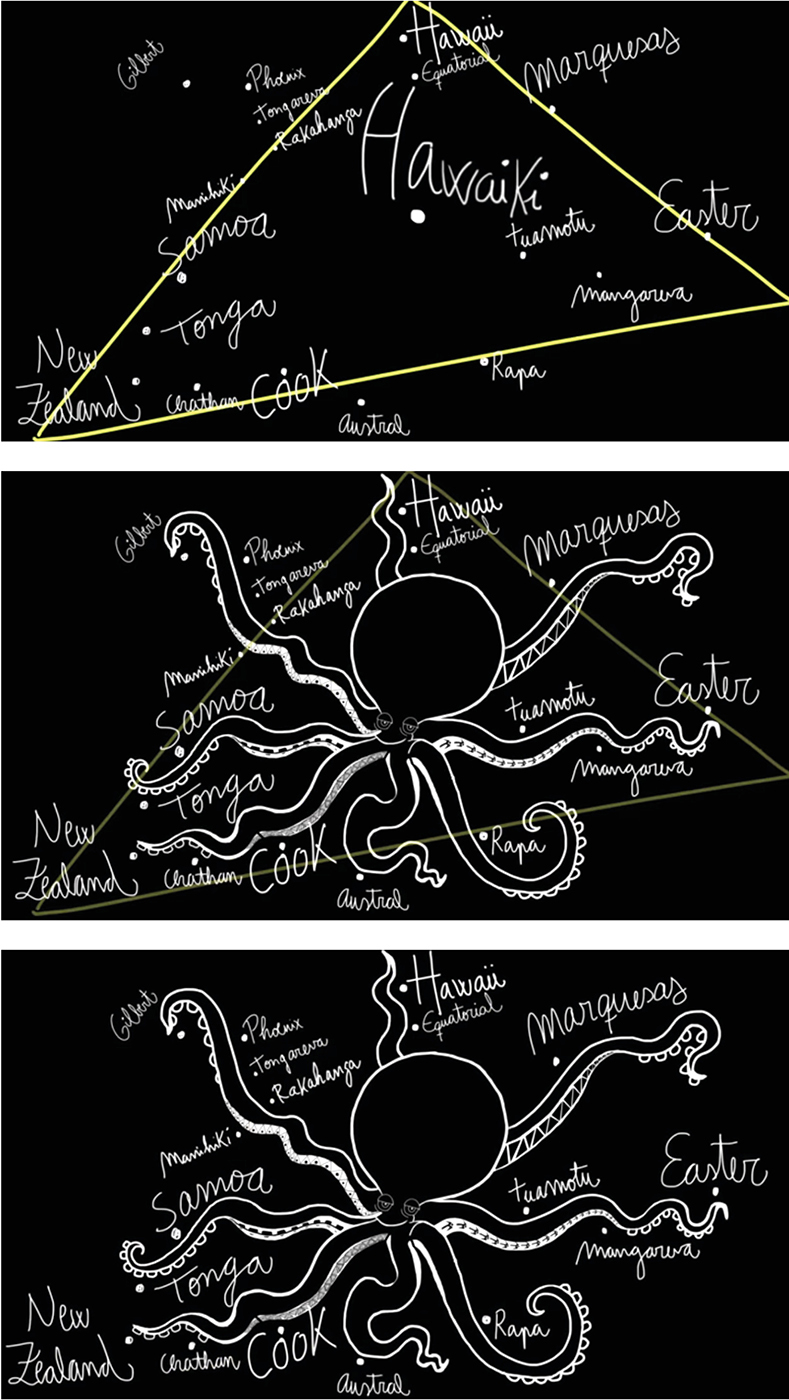 Hawaii
Gilbert
Phœnix
Equatorial
Marquesas
Tongareva
Rakahanga
Hawaiki
Manihiki
Samoa
Easter
Tuamotu
Tonga
Mangareva
New
Zealand
Chathan
Cook
Rapa
Austral
Hawaii
Gilbert
Phœnix
Equatorial
Marquesas
Tongareva
Rakahanga
Manihiki
Samoa
Easter
Tuamotu
Tonga
Mangareva
New
Zealand
Chathan
Cook
Rapa
Austral
Hawaii
Gilbert
Phœnix
Equatorial
Marquesas
Tongareva
Rakahanga
Manihiki
Samoa
Easter
Tuamotu
Tonga
Mangareva
New
Zealand
Chathan
Cook
Rapa
Austral